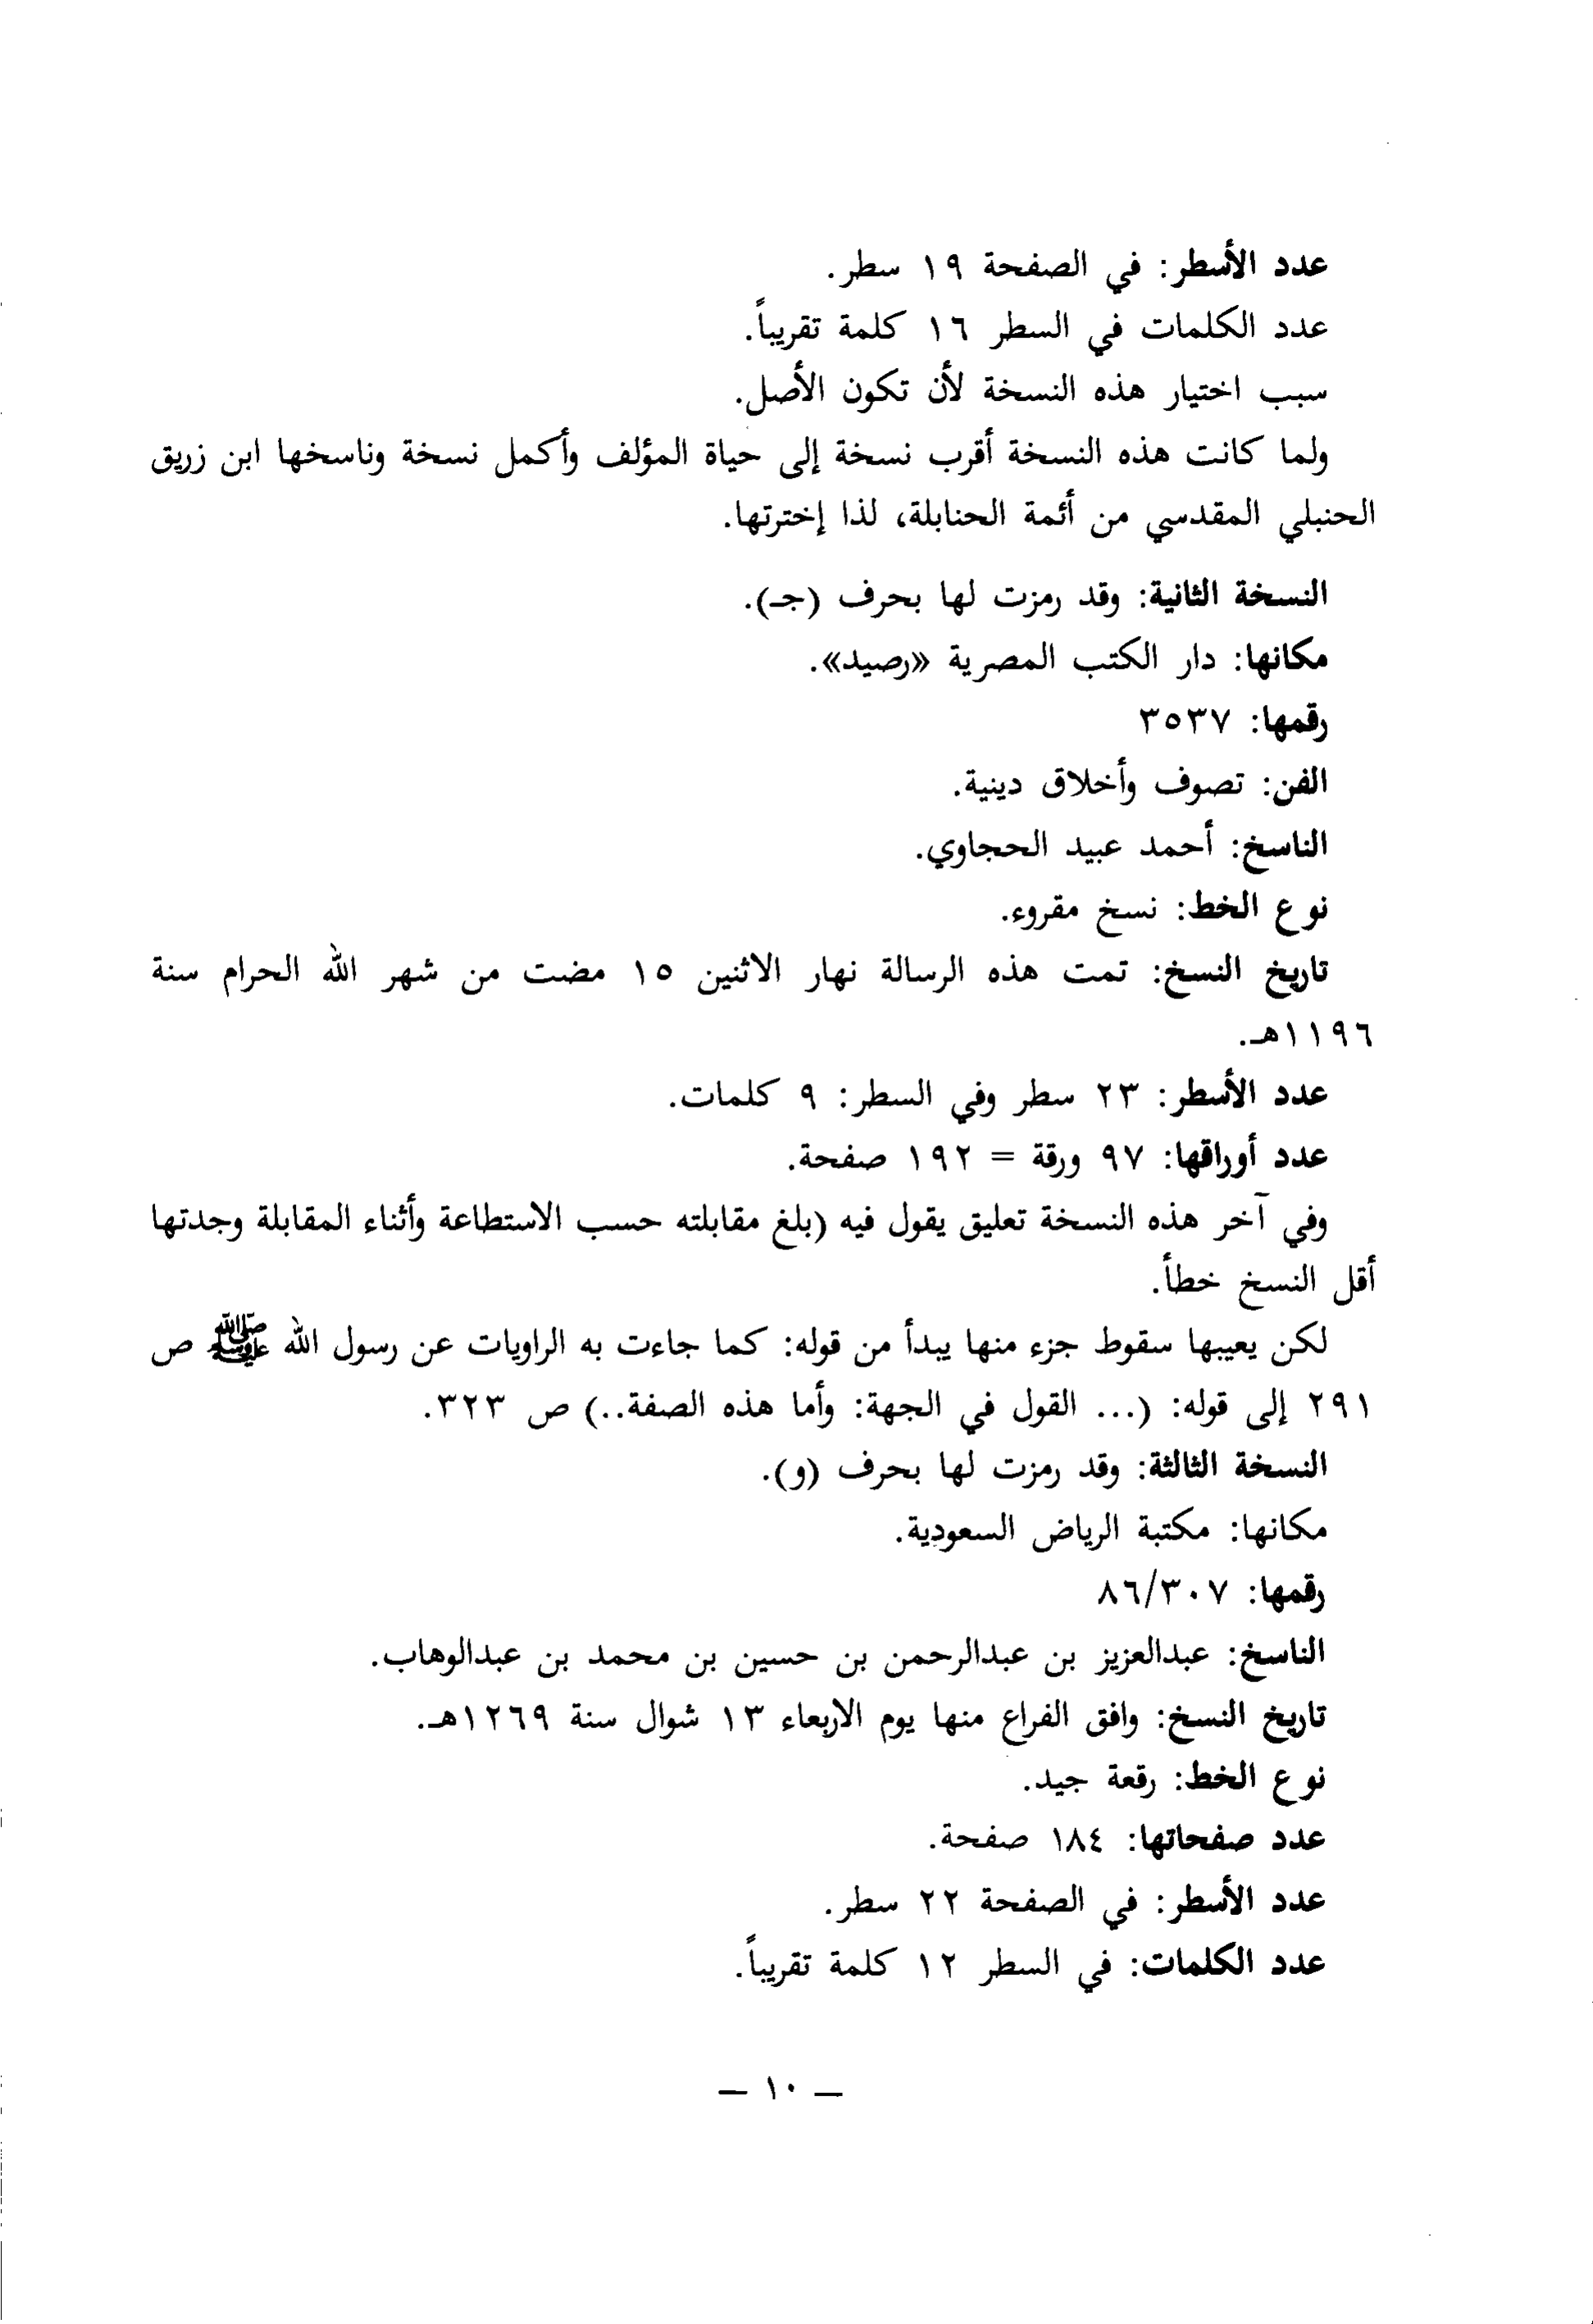 عدد الأسطر: في الصفحة ١٩ سطر.
عدد الكلمات في السطر ١٦ كلمة تقريباً.
سبب اختيار هذه النسخة لأن تكون الأصل.
ولما كانت هذه النسخة أقرب نسخة إلى حياة المؤلف وأكمل نسخة وناسخها ابن زريق
الحنبلي المقدسي من أئمة الحنابلة، لذا إخترتها.
النسخة الثانية: وقد رمزت لها بحرف (جـ).
مكانها: دار الكتب المصرية «رصيد».
رقمها: ٣٥٣٧
الفن: تصوف وأخلاق دينية.
الناسخ: أحمد عبيد الحجاوي.
نوع الخط: نسخ مقروء.
تاريخ النسخ: تمت هذه الرسالة نهار الاثنين ١٥ مضت من شهر الله الحرام سنة
١١٩٦هـ.
عدد الأسطر: ٢٣ سطر وفي السطر: ٩ كلمات.
عدد أوراقها: ٩٧ ورقة = ١٩٢ صفحة.
وفي آخر هذه النسخة تعليق يقول فيه (بلغ مقابلته حسب الاستطاعة وأثناء المقابلة وجدتها
أقل النسخ خطأ.
لكن يعيبها سقوط جزء منها يبدأ من قوله: كما جاءت به الراويات عن رسول الله ﷺ ص
٢٩١ إلى قوله: (... القول في الجهة: وأما هذه الصفة..) ص ٣٢٣.
النسخة الثالثة: وقد رمزت لها بحرف (و).
مكانها: مكتبة الرياض السعودية.
رقمها: ٨٦/٣٠٧
الناسخ: عبدالعزيز بن عبدالرحمن بن حسين بن محمد بن عبدالوهاب.
تاريخ النسخ: وافق الفراع منها يوم الاربعاء ١٣ شوال سنة ١٢٦٩هـ.
نوع الخط: رقعة جيد.
عدد صفحاتها: ١٨٤ صفحة.
عدد الأسطر: في الصفحة ٢٢ سطر.
عدد الكلمات: في السطر ١٢ كلمة تقريباً.
— ١٠ —